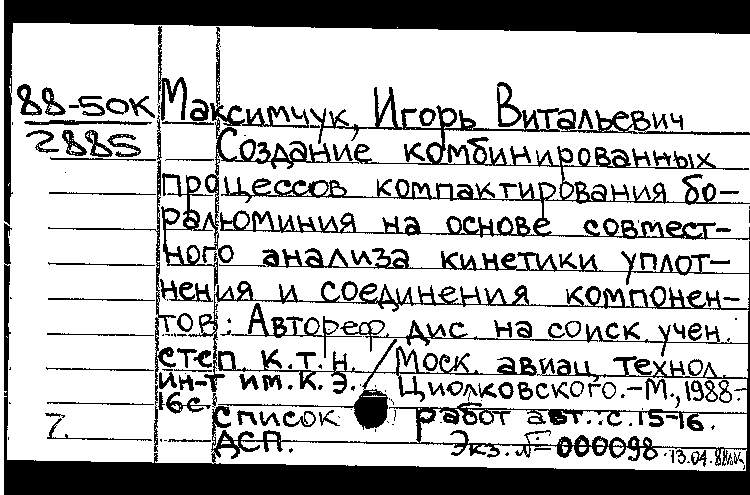 88-50К Максимчук, Игорь Витальевич
2885 Создание комбинированных
процессов компактирования бо-
ралюминия на основе совмест-
ного анализа кинетики уплот-
нения и соединения компонен-
тов: Автореф. дис. на соиск. учен.
степ. к.т.н. / Моск. авиац. технол.
ин-т им. К. Э. Циолковского. - М., 1988.-
16с.
список работ авт.: с. 15-16.
7. ДСП. Экз. № 000098
13.04.88